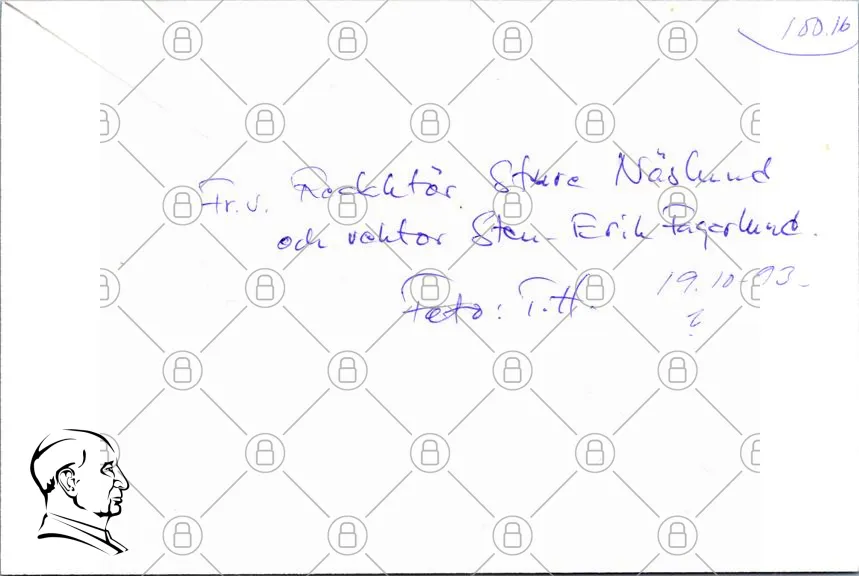 100.16
Fr. v. Redaktör Sture Näslund
och rektor Sten-Erik Fagerlund.
Foto: T.H. 19.10-93-
?